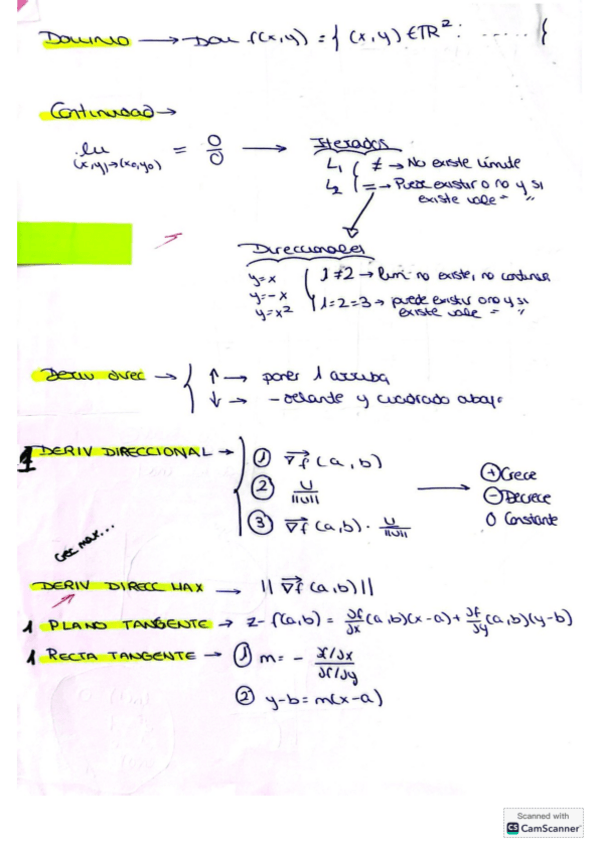 DOMINIO → DOM f(x,y) = { (x,y) ∈ TR²: ...... {
Continuidad →
lim (x,y)→(x0,y0) = 0/0 → Iterados
L1 ≠ → No existe límite
L2 = → Puede existir o no y si
existe vale = "
Direccionales
y=x 1≠2 → lim no existe, no continua
y=-x
y=x² 1=2=3 → puede existir o no y si
existe vale = "
Deriv direc → ↑ → poner 1 arriba
↓ → - delante y cuadrado abajo
1 DERIV DIRECCIONAL → ① ∇f (a,b)
② U/||U||
③ ∇f (a,b) · U/||U||
→ ⊕ Crece
⊖ Decrece
0 Constante
crec max...
DERIV DIRECC MAX → || ∇f (a,b) ||
1 PLANO TANGENTE → z - f(a,b) = ∂f/∂x (a,b)(x-a) + ∂f/∂y (a,b)(y-b)
1 RECTA TANGENTE → ① m = - ∂f/∂x / ∂f/∂y
② y-b = m(x-a)
Scanned with
CS CamScanner